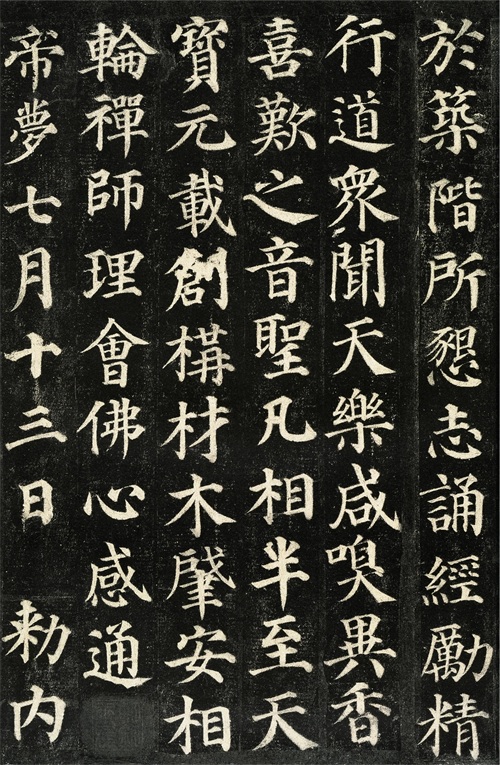 於築階所懇志誦經勵精
行道眾聞天樂咸嗅異香
喜歎之音聖凡相半至天
寶元載創構材木肇安相
輪禪師理會佛心感通
帝夢七月十三日 勑内